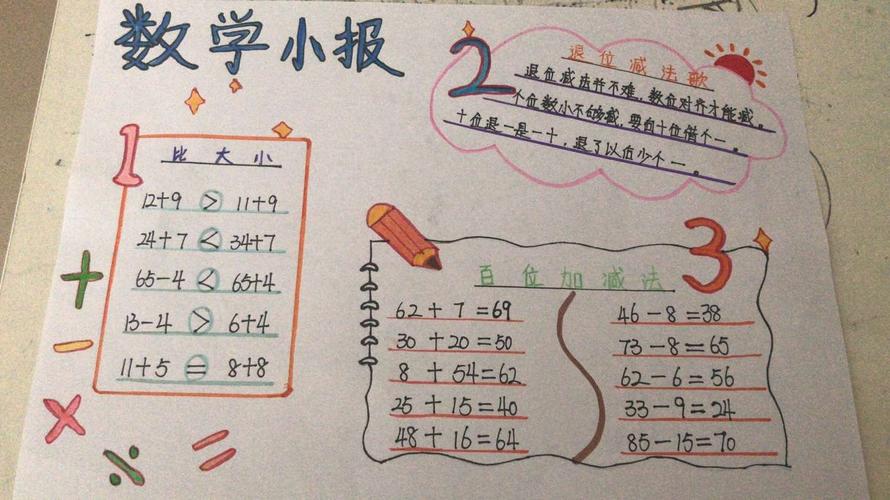 数学小报
1
比大小
12+9 > 11+9
24+7 < 34+7
65-4 < 65+4
13-4 > 6+4
11+5 = 8+8
+
-
×
÷
=
2
退位减法歌
退位减法并不难，数位对齐才能减。
个位数小不够减，要向十位借个一。
十位退一是一十，退了以后少个一。
3
百位加减法
62+7=69
30+20=50
8+54=62
25+15=40
48+16=64
46-8=38
73-8=65
62-6=56
33-9=24
85-15=70